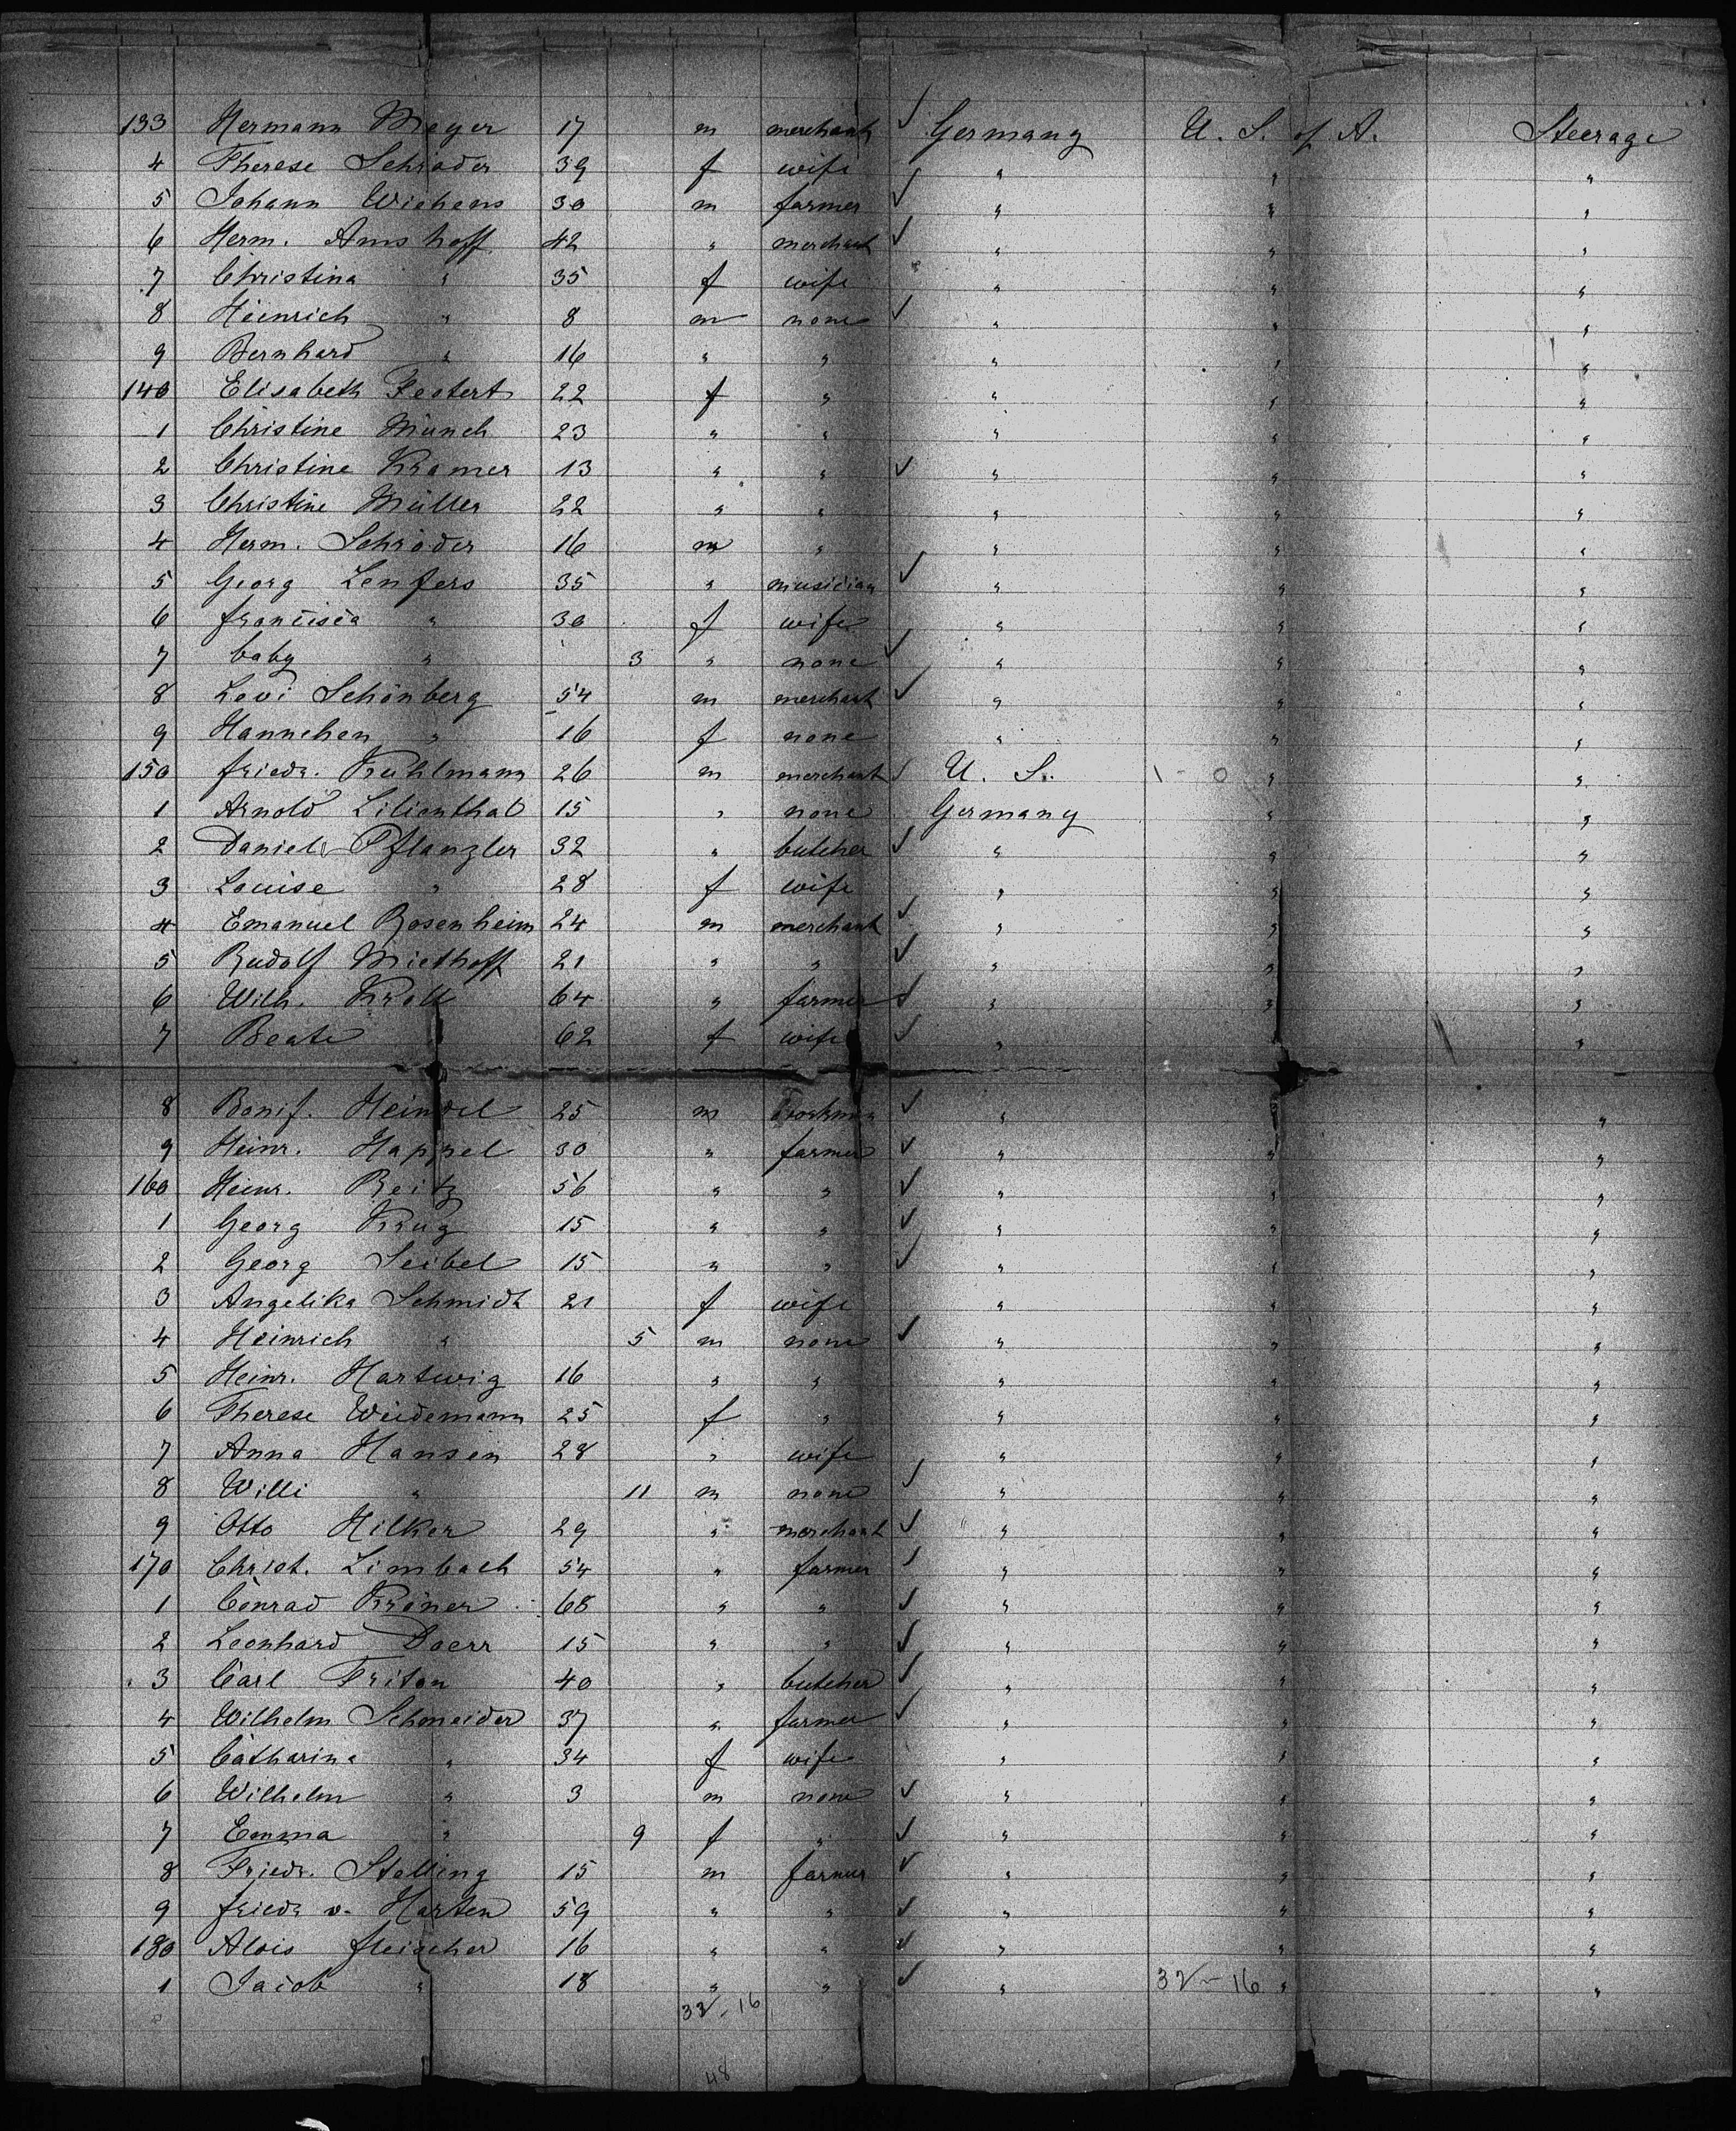 133 Hermann Meyer 17 m merchant ✓ Germany U. S. of A. Steerage
4 Therese Schrader 39 f wife " " "
5 Johann Wichens 30 m farmer ✓ " " "
6 Herm. Amshoff 42 " merchant ✓ " " "
7 Christina " 35 f wife " " "
8 Heinrich " 8 m none ✓ " " "
9 Bernhard " 16 " " " " "
140 Elisabeth 22 f " " " "
1 Christine Münch 23 " " " " "
2 Christine Kramer 13 " " ✓ " " "
3 Christine Müller 22 " " " " "
4 Herm. Schröder 16 m " " " "
5 Georg Lenfers 35 " musician ✓ " " "
6 francisca " 30 f wife " " "
7 baby " 3 " none ✓ " " "
8 Levi Schönberg 54 m merchant ✓ " " "
9 Hannchen " 16 f none " " "
150 friedr. Kuhlmann 26 m merchant ✓ U. S. " "
1 Arnold Lilienthal 15 " none Germany " "
2 Daniel Pflanzler 32 " butcher ✓ " " "
3 Louise " 28 f wife " " "
4 Emanuel Rosenheim 24 m merchant ✓ " " "
5 Rudolf Miethoff 21 " " ✓ " " "
6 Wilh. Kroll 64 " farmer ✓ " " "
7 Beate 62 f wife ✓ " "
8 Bonif. Heindel 25 m ✓ " "
9 Heinr. Happel 30 " farmer ✓ " " "
160 Heinr. Reitz 56 " " ✓ " " "
1 Georg Krug 15 " " ✓ " " "
2 Georg Seibel 15 " " ✓ " " "
3 Angelika Schmidt 21 f wife " " "
4 Heinrich " 5 m none ✓ " " "
5 Heinr. Hartwig 16 " " " " "
6 Therese Weidemann 25 f " " " "
7 Anna Hansen 28 " wife " " "
8 Willi " 11 m none ✓ " " "
9 Otto Hilker 29 " merchant ✓ " " "
170 Christ. Limbach 54 " farmer ✓ " " "
1 Conrad Kröner 68 " " ✓ " " "
2 Leonhard Doerr 15 " " ✓ " " "
3 Carl Friton 40 " butcher ✓ " " "
4 Wilhelm Schneider 37 " farmer ✓ " " "
5 Catharina " 34 f wife " " "
6 Wilhelm " 3 m none ✓ " " "
7 Emma " 9 f " ✓ " " "
8 Friedr. Stalling 15 m farmer ✓ " " "
9 friedr v. Harten 59 " " ✓ " " "
180 Alois fleischer 16 " " ✓ " " "
1 Jacob " 18 " " ✓ " 32-16 " "
32-16
48